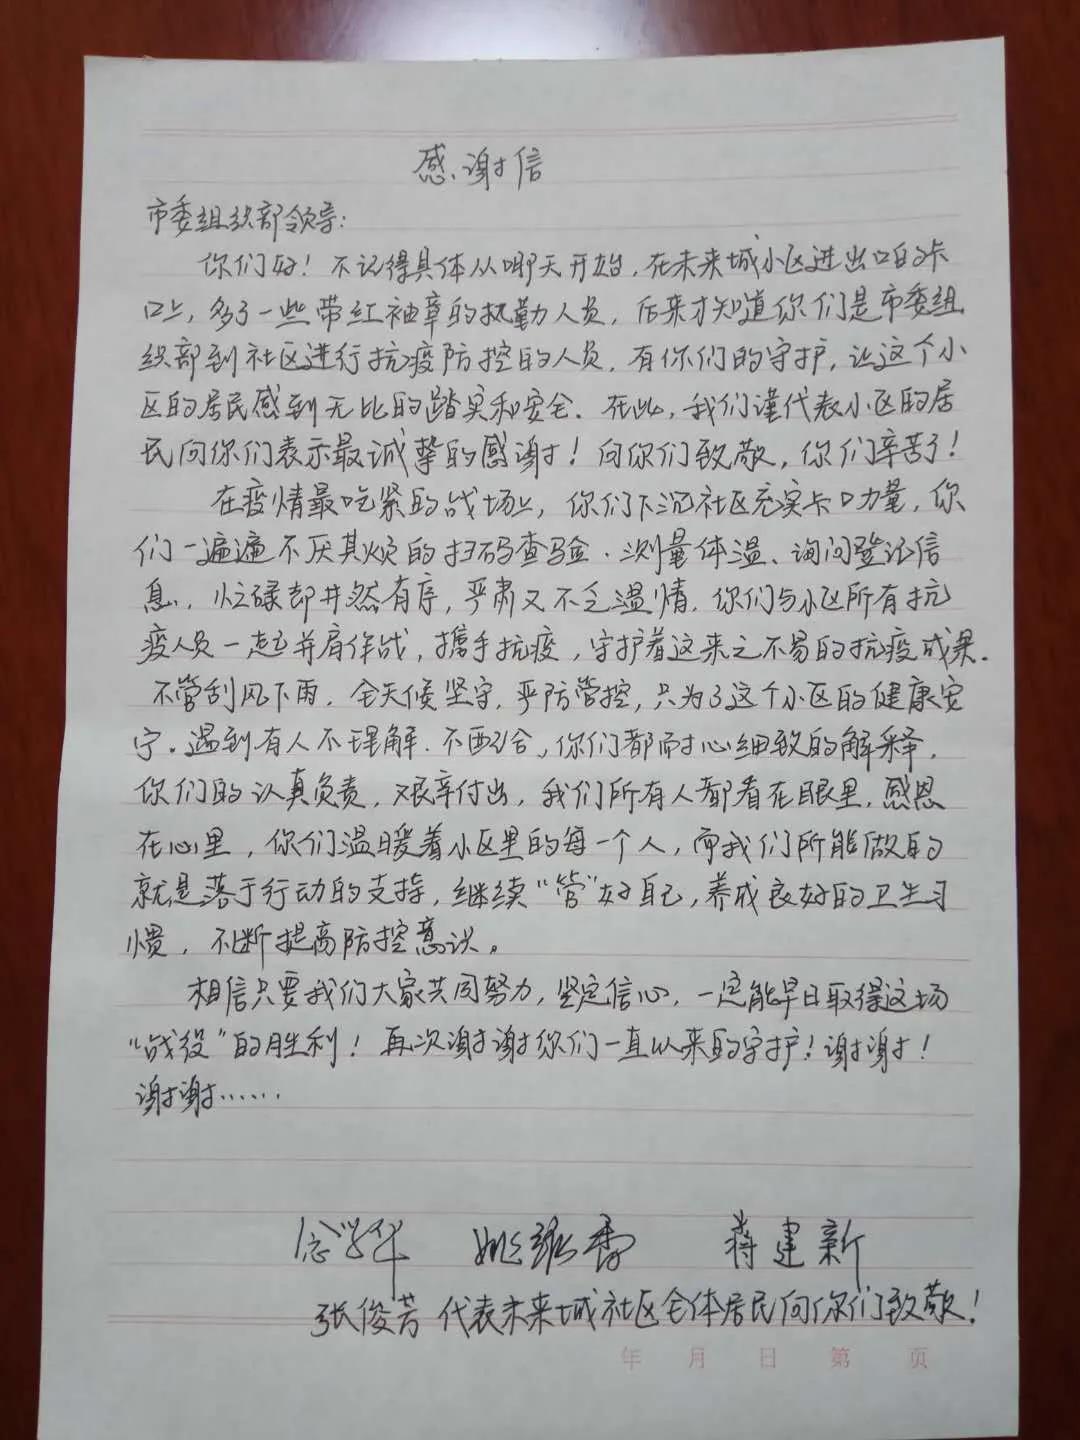 感谢信
市委组织部领导：
你们好！不记得具体从哪天开始，在未来城小区进出口的卡
口上，多了一些带红袖章的执勤人员，后来才知道你们是市委组
织部到社区进行抗疫防控的人员，有你们的守护，让这个小
区的居民感到无比的踏实和安全。在此，我们谨代表小区的居
民向你们表示最诚挚的感谢！向你们致敬，你们辛苦了！
在疫情最吃紧的战场上，你们下沉社区充实卡口力量，你
们一遍遍不厌其烦的扫码查验、测量体温、询问登记信
息，忙碌却井然有序，严肃又不乏温情，你们与小区所有抗
疫人员一起并肩作战，携手抗疫，守护着这来之不易的抗疫成果。
不管刮风下雨，全天候坚守，严防管控，只为了这个小区的健康安
宁。遇到有人不理解、不配合，你们都耐心细致的解释，
你们的认真负责，艰辛付出，我们所有人都看在眼里，感恩
在心里，你们温暖着小区里的每一个人，而我们所能做的
就是落于行动的支持，继续“管”好自己，养成良好的卫生习
惯，不断提高防控意识。
相信只要我们大家共同努力，坚定信心，一定能早日取得这场
“战役”的胜利！再次谢谢你们一直以来的守护！谢谢！
谢谢……
蒋建新
张俊芳 代表未来城社区全体居民向你们致敬！
年 月 日 第 页